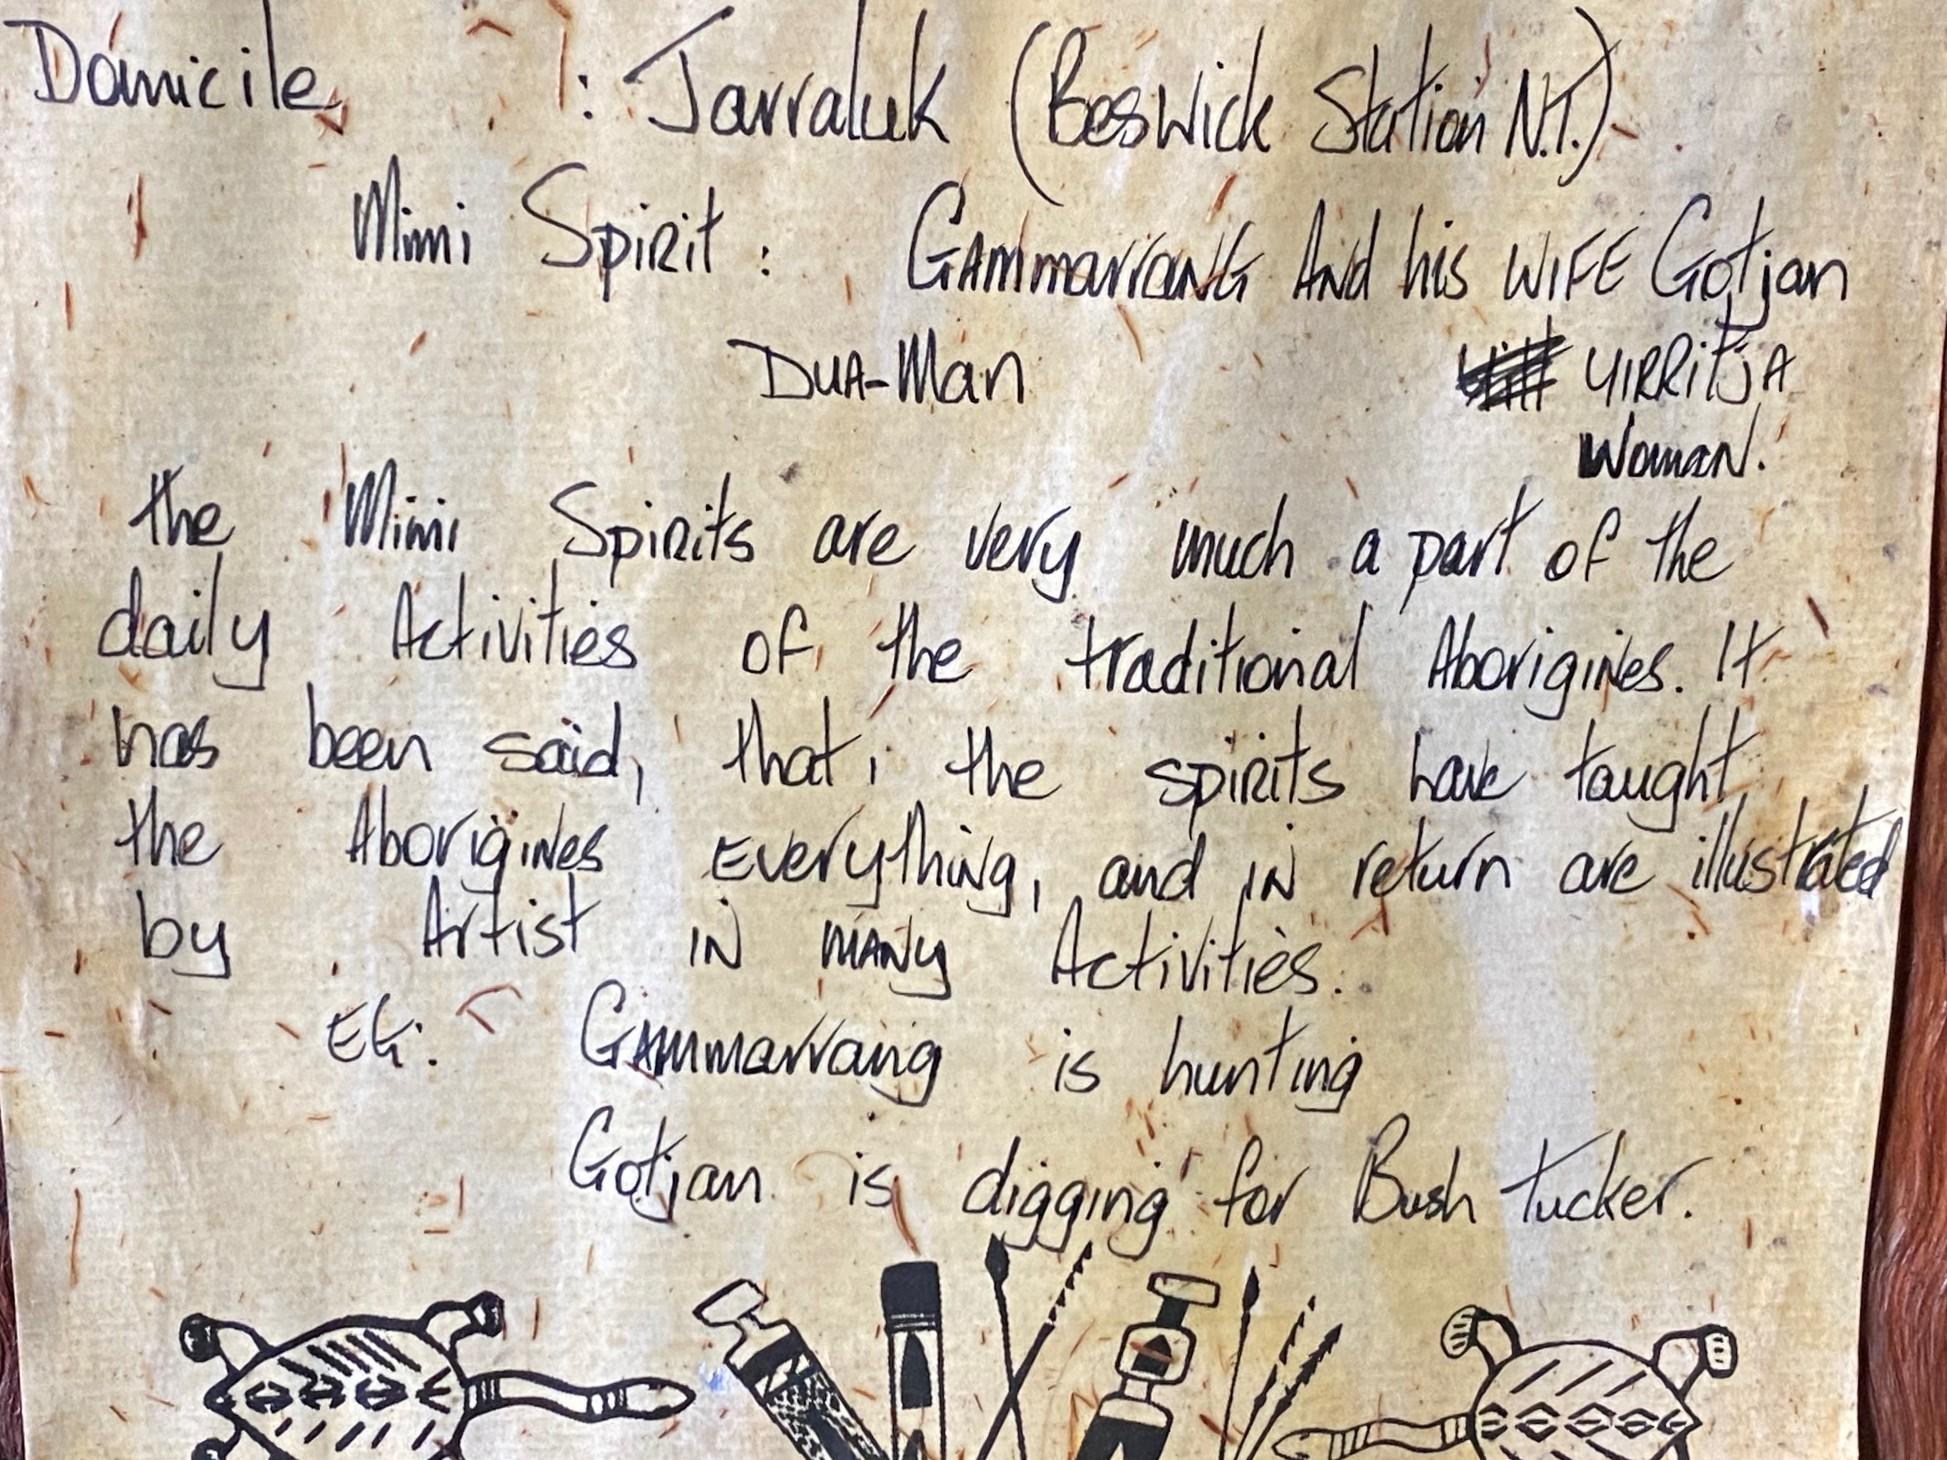 Domicile : Jarraluk (Beswick Station N.T.)
Mimi Spirit : GAMMarraNG And his WIFE Gotjan
DUA-Man YIRRITJA
Woman.
the Mimi Spirits are very much a part of the
daily Activities of the traditional Aborigines. It
has been said, that, the spirits have taught
the Aborigines Everything, and in return are illustrated
by Artist in many Activities.
EG: Gammarrang is hunting
Gotjan is digging for Bush tucker.